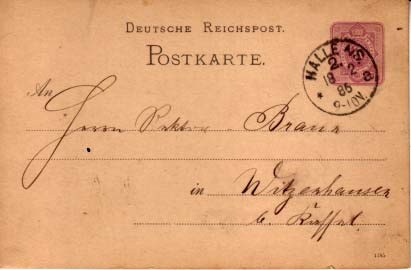 DEUTSCHE REICHSPOST.
POSTKARTE.
HALLE
2. 2.
18 85
9-10V.
An
Herrn Rektor Braun
in Witzenhausen
b.